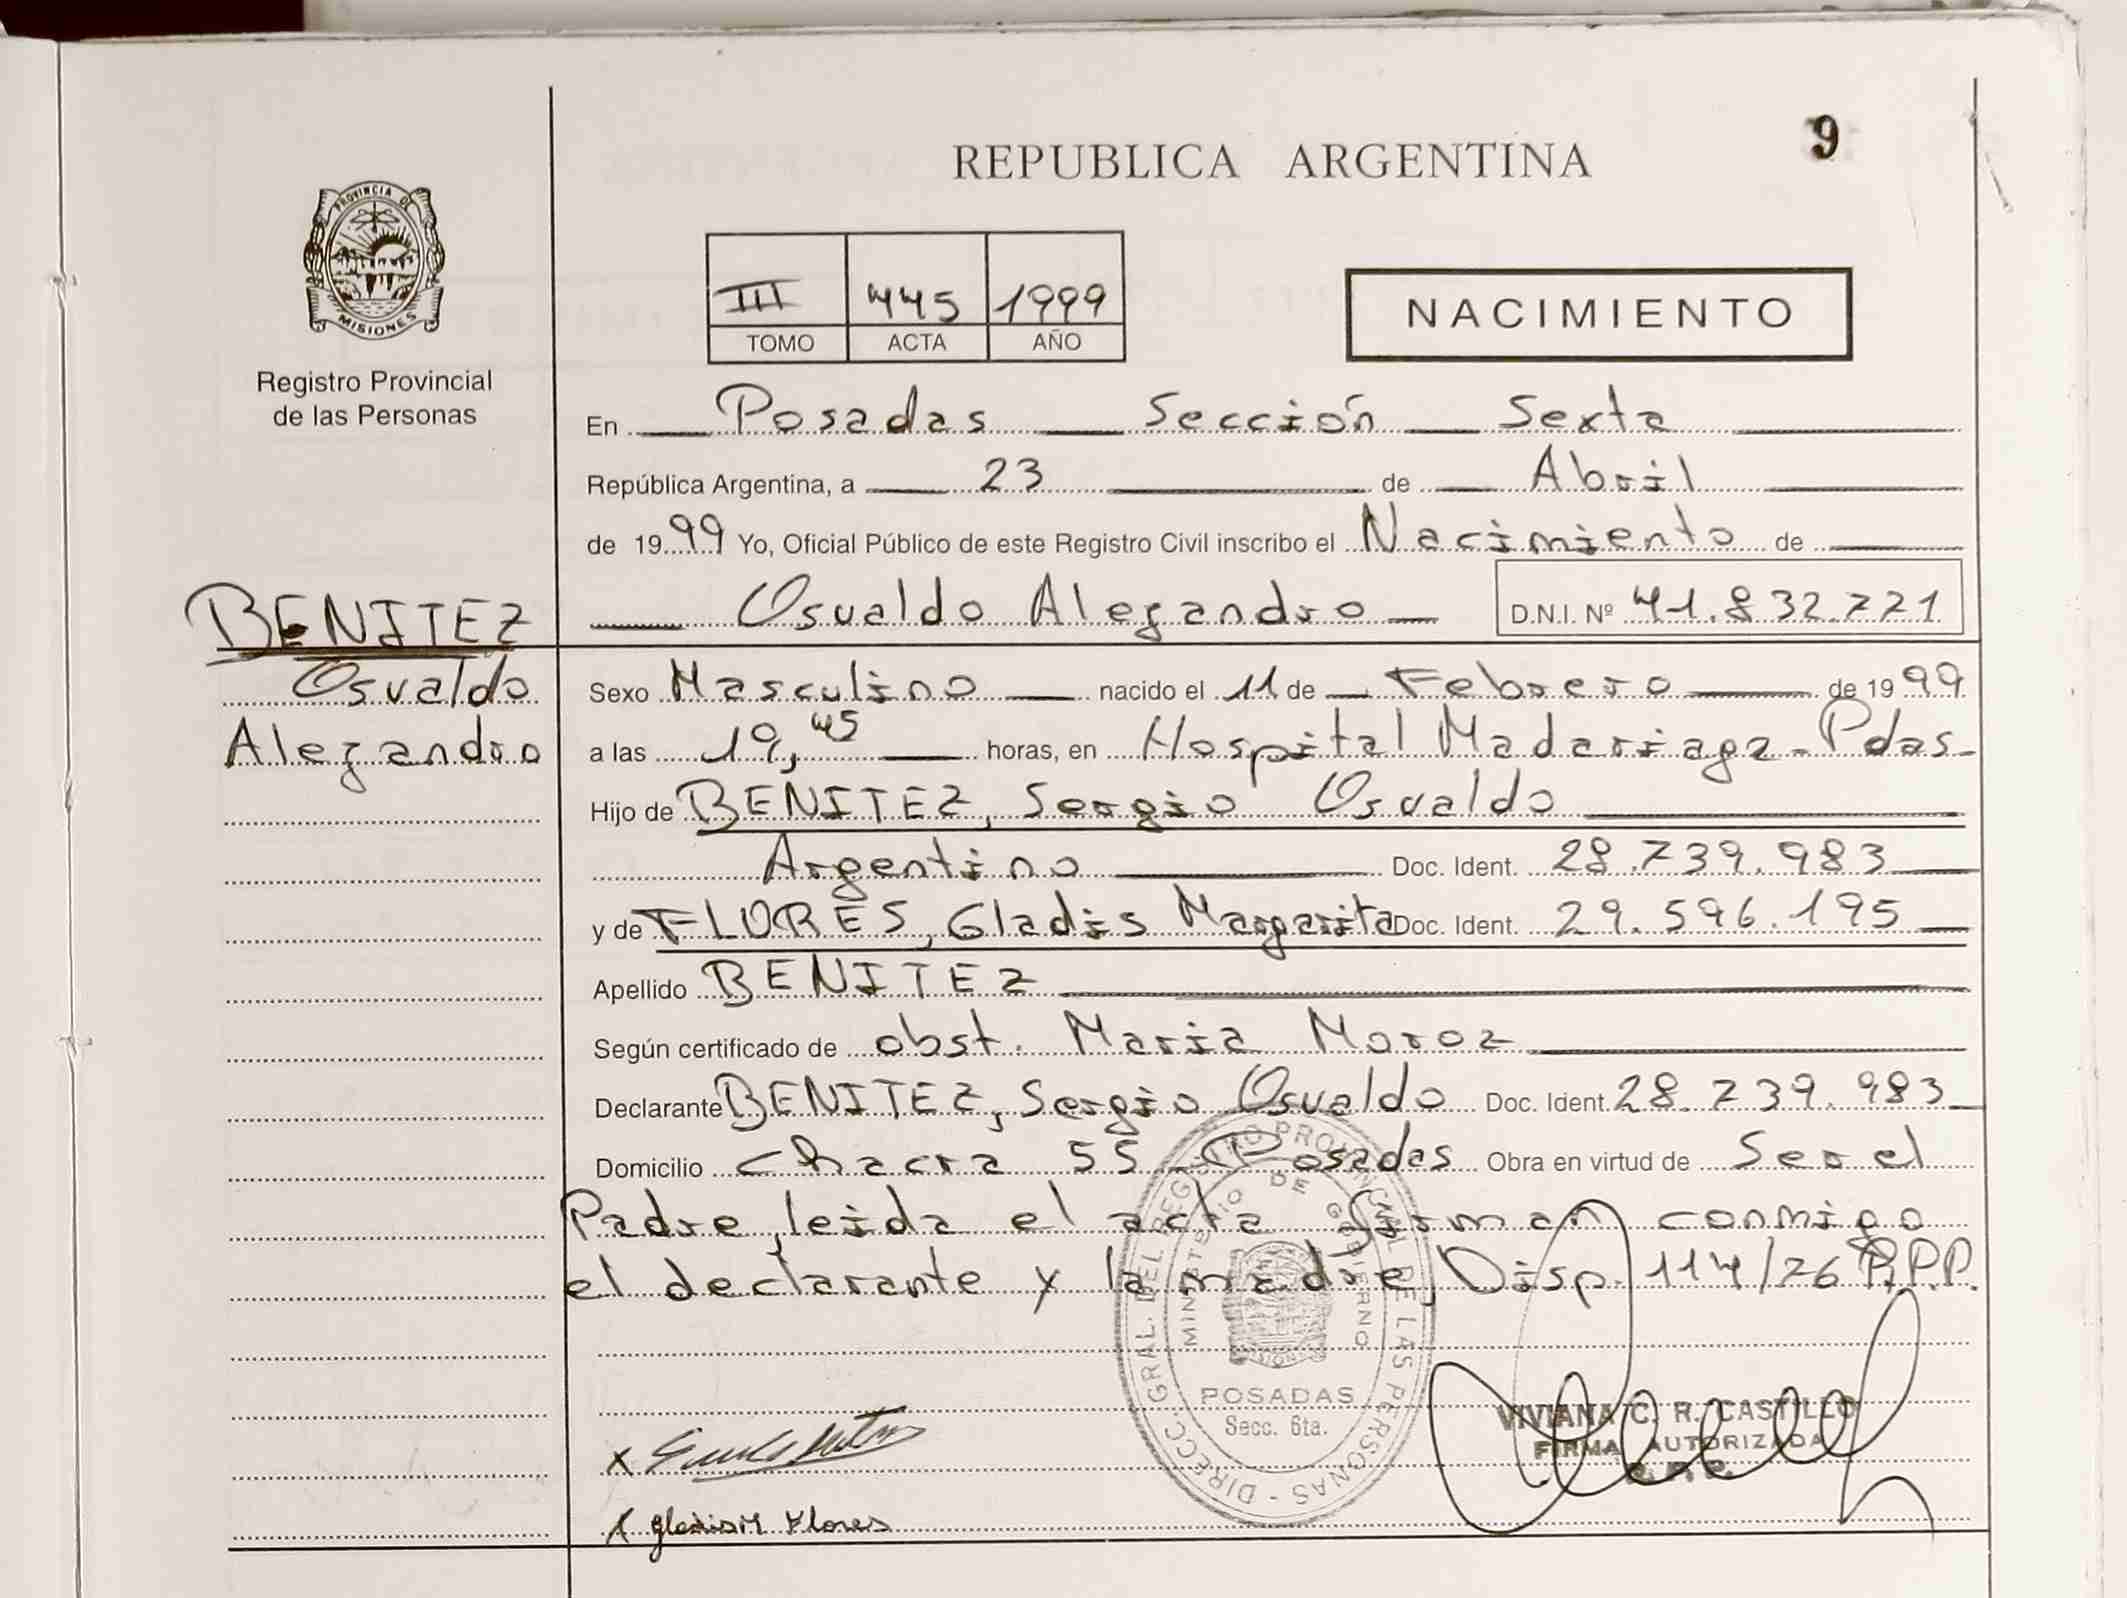 9
REPUBLICA ARGENTINA
PROVINCIA DE MISIONES
Registro Provincial
de las Personas
III 445 1999
TOMO ACTA AÑO
NACIMIENTO
En Posadas Sección Sexta
República Argentina, a 23 de Abril
de 1999 Yo, Oficial Público de este Registro Civil inscribo el Nacimiento de
Osvaldo Alejandro D.N.I. Nº 41.832.771
BENITEZ
Osvaldo
Alejandro
Sexo Masculino nacido el 11 de Febrero de 1999
a las 19,45 horas, en Hospital Madariaga - Pdas-
Hijo de BENITEZ, Sergio Osvaldo
Argentino Doc. Ident. 28.739.983
y de FLORES, Gladis Margarita Doc. Ident. 29.596.195
Apellido BENITEZ
Según certificado de obst. Maria Moroz
Declarante BENITEZ, Sergio Osvaldo Doc. Ident. 28.739.983
Domicilio Chacra 55 - Posadas Obra en virtud de Ser el
Padre, leida el acta firman conmigo
el declarante y la madre, Disp. 114/76 R.P.P.
DIRECC. GRAL. DEL REGISTRO PROVINCIAL DE LAS PERSONAS -
MINISTERIO DE GOBIERNO
POSADAS
Secc. 6ta.
VIVIANA C. R. CASTILLO
FIRMA AUTORIZADA
R. P. P.
X
X Gladis M Flores